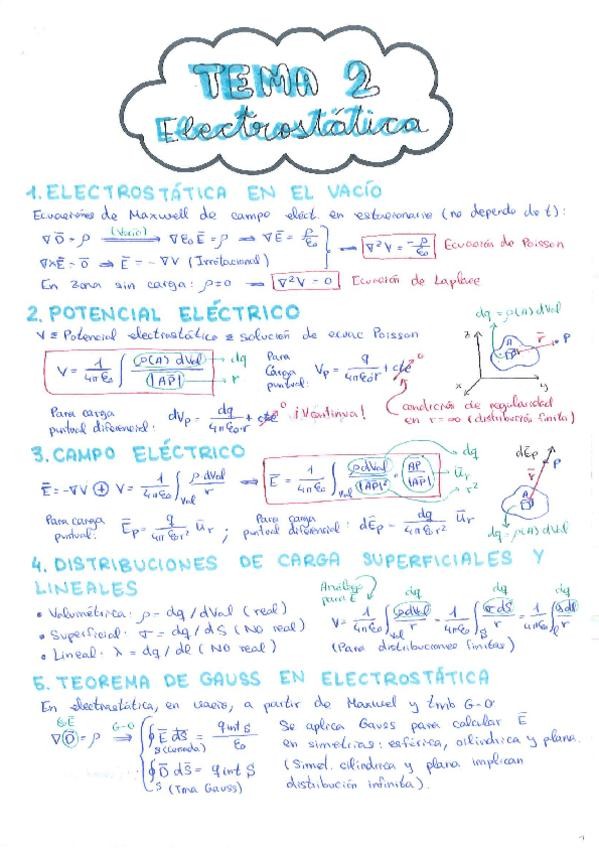 TEMA 2
Electrostática
1. ELECTROSTÁTICA EN EL VACÍO
Ecuaciones de Maxwell de campo eléct. en estacionario (no depende de t):
∇D̄ = ρ (Vacío) ⟶ ∇ε₀Ē = ρ ⟹ ∇Ē = ρ/ε₀
∇×Ē = 0̄ ⟹ Ē = -∇V (Irrotacional)
⟹ ∇²V = -ρ/ε₀ Ecuación de Poisson
En zona sin carga: ρ=0 ⟹ ∇²V = 0 Ecuación de Laplace
2. POTENCIAL ELÉCTRICO
V ≡ Potencial electrostático ≡ solución de ecuac Poisson
V = 1/4πε₀ ∫ ρ(A) dVol / |AP̄| → dq → r
Para carga puntual: Vp = q/4πε₀r + cte 0
dq = ρ(A) dVol
z A r̄ P
x y
Para carga puntual diferencial: dVp = dq/4πε₀r + cte 0 ¡Vcontinua!
condición de regularidad
en r = ∞ (distribución finita)
3. CAMPO ELÉCTRICO
Ē = -∇V ⊕ V = 1/4πε₀ ∫Vol ρ dVol / r ⟹ Ē = 1/4πε₀ ∫Vol ρdVol / |AP̄|² · AP̄/|AP̄|
dq
ūr
r²
dĒp P
r̄
A
dq = ρ(A) dVol
Para carga puntual: Ēp = q/4πε₀r² ūr ; Para carga puntual diferencial: dĒp = dq/4πε₀r² ūr
4. DISTRIBUCIONES DE CARGA SUPERFICIALES Y
LINEALES
• Volumétrica: ρ = dq / dVol (real)
• Superficial: σ = dq / dS (NO real)
• Lineal: λ = dq / dl (NO real)
Análogo para Ē
dq dq dq
V = 1/4πε₀ ∫Vol ρdVol / r = 1/4πε₀ ∫S σ dS / r = 1/4πε₀ ∫l λdl / r
(Para distribuciones finitas)
5. TEOREMA DE GAUSS EN ELECTROSTÁTICA
En electrostática, en vacío, a partir de Maxwell y tmb G-O
ε₀Ē
∇D̄ = ρ G-O ⟹ ∮S(cerrada) Ē dS̄ = qint S / ε₀
∮S D̄ dS̄ = qint S
(Tma Gauss)
Se aplica Gauss para calcular Ē
en simetrías: esférica, cilíndrica y plana.
(Simet. cilíndrica y plana implican
distribución infinita).